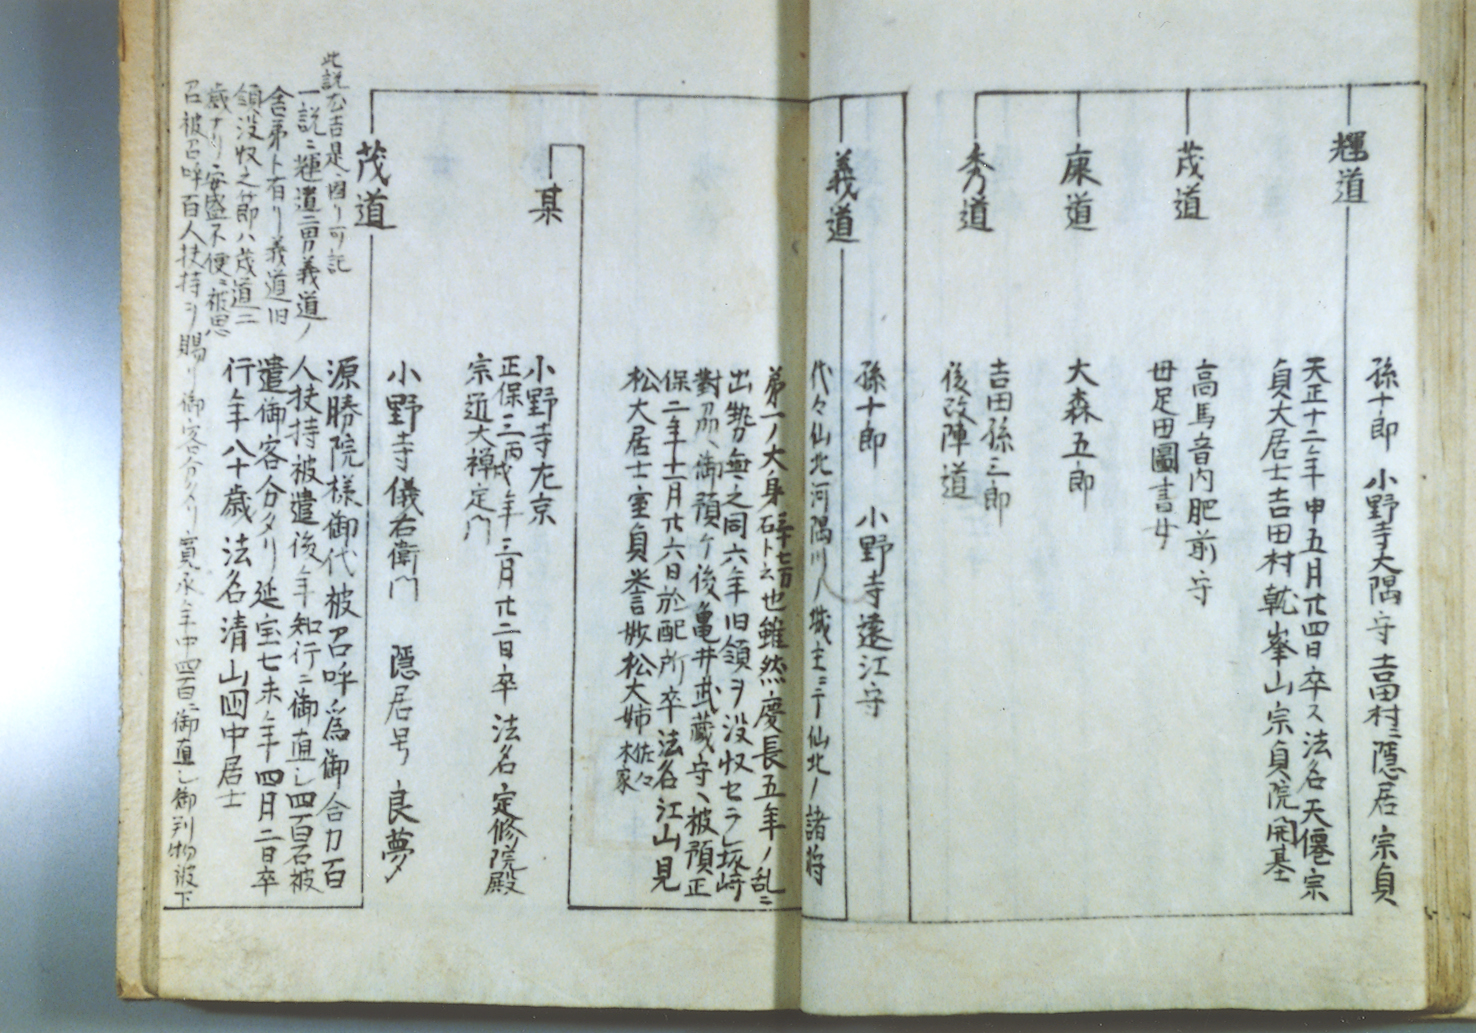 輝道
孫十郎 小野寺大隅守 吉田村ニ隠居 宗貞
天正十二年申五月廿四日卒ス法名天僊宗
貞大居士吉田村乾峯山宗貞院開基
茂道
高馬音内肥前守
母足田圖書女
康道
大森五郎
秀道
吉田孫三郎
後改陣道
義道
孫十郎 小野寺遠江守
代々仙北河隅川ノ城主ニテ仙北ノ諸将
第一ノ大身 云也雖然慶長五年ノ乱ニ
出勢無之同六年旧領ヲ没収セラレ坂崎
對馬守ヘ御預ケ後亀井武蔵守ヘ被預正
保二年十一月廿六日於配所卒法名江山見
松大居士室貞誉妙松大姉
佐々
木家
某
小野寺左京
正保三丙戌年三月廿二日卒 法名 定修院殿
宗道大禅定門
茂道
小野寺儀右衛門 隠居号 良夢
源勝院様御代被召呼為御合力百
人扶持被遣後年知行ニ御直シ四百石被
遣御客分タリ延宝七未年四月二日卒
行年八十歳 法名清山四中居士
此説 吉是 因り可記
一説ニ輝道二男義道ノ
舎弟ト有リ義道旧
領没収之節ハ茂道二
歳ナリ安盛不便ニ被思
召被召呼百人扶持ヲ賜リ御客分タリ寛永年中四百石ニ御直シ御判物被下